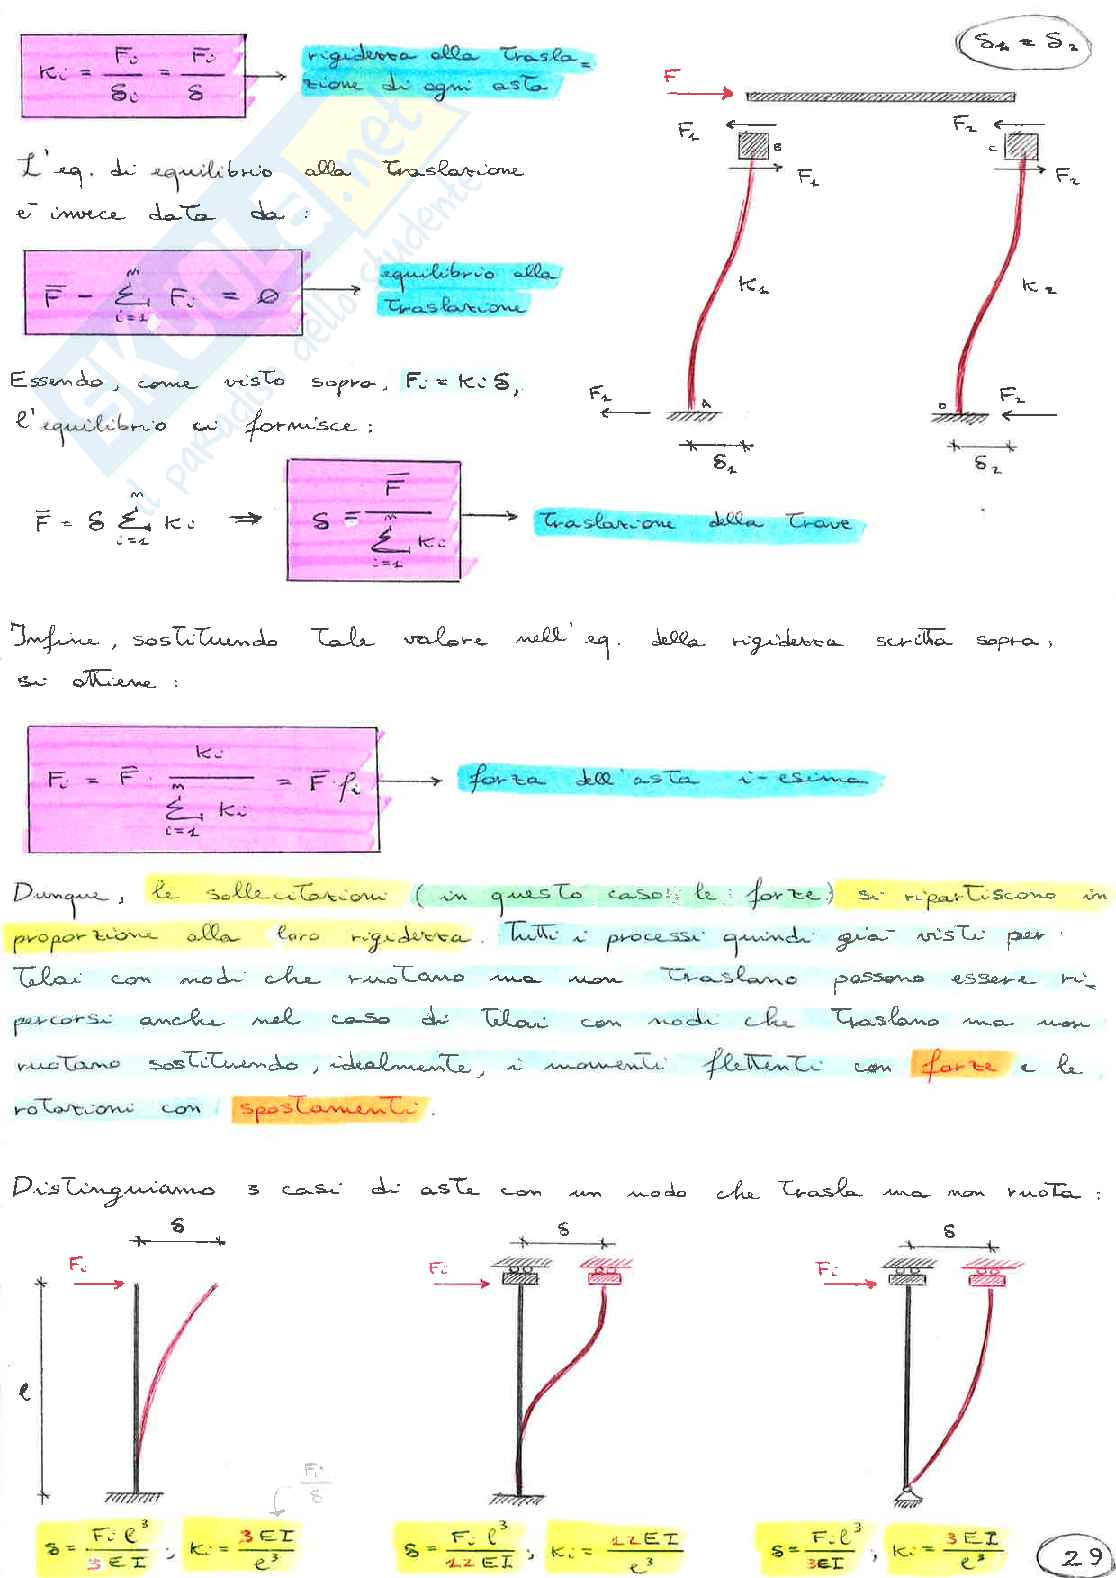 Ki = Fi/δi = F̄i/δ → rigidezza alla trasla=
zione di ogni asta
δ1 = δ2
F
F1
B
F1
F2
C
F2
K1
K2
F1
A
D
F2
δ1
δ2
L'eq. di equilibrio alla traslazione
è invece data da :
F̄ - Σ Fi = ∅ → equilibrio alla
n
i=1
traslazione
Essendo, come visto sopra, Fi = Ki δ,
l'equilibrio ci fornisce :
F̄ = δ Σ Ki ⇒ δ = F̄ / Σ Ki → traslazione della trave
n
i=1
n
i=1
Infine, sostituendo tale valore nell'eq. della rigidezza scritta sopra,
si ottiene :
Fi = F̄ · Ki / Σ Ki = F̄ · ρi → forza dell'asta i-esima
n
i=1
Dunque, le sollecitazioni (in questo caso: le forze) si ripartiscono in
proporzione alla loro rigidezza. Tutti i processi quindi già visti per
telai con nodi che ruotano ma non traslano possono essere ri-
percorsi anche nel caso di telai con nodi che traslano ma non
ruotano sostituendo, idealmente, i momenti flettenti con forze e le
rotazioni con spostamenti.
Distinguiamo 3 casi di aste con un nodo che trasla ma non ruota :
δ
δ
δ
Fi
Fi
Fi
l
Fi/δ
δ = Fi l³/3EI ; Ki = 3EI/l³
δ = Fi l³/12EI ; Ki = 12EI/l³
δ = Fi l³/3EI ; Ki = 3EI/l³
29
SKUOLA.net
il paradiso dello studente